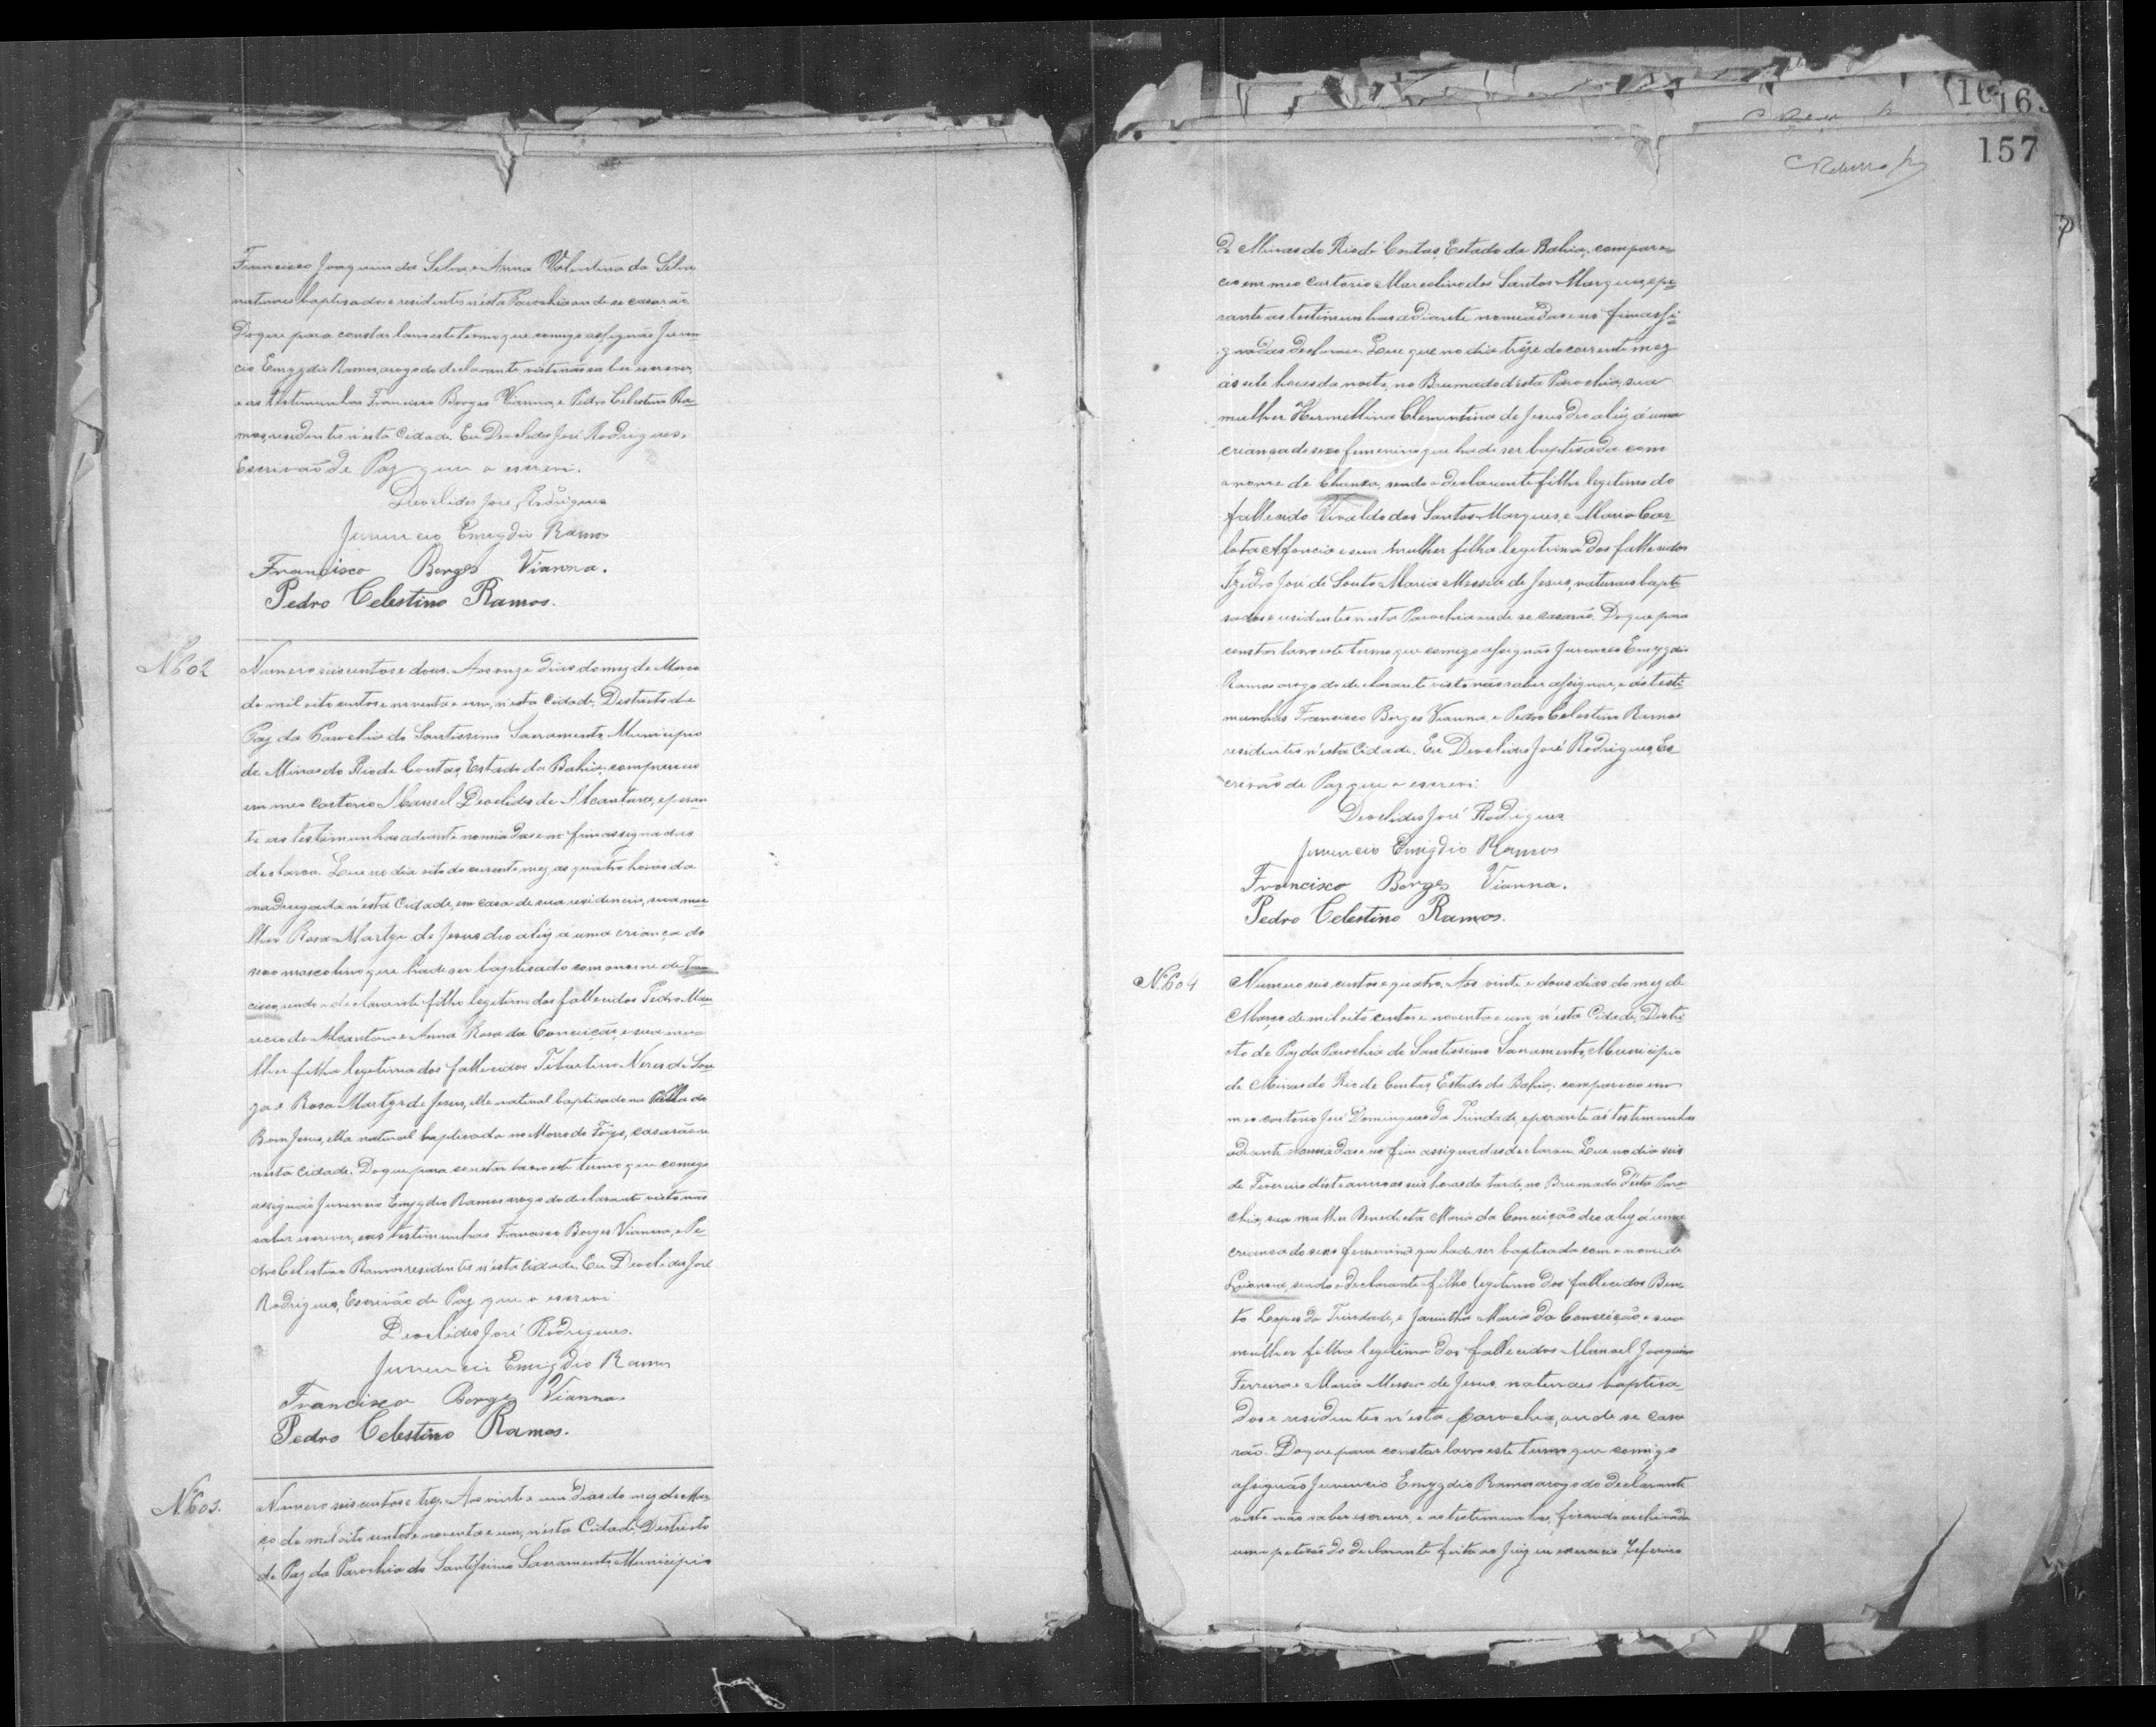 Francisco Joaquim da Silva e Anna Valentina da Silva
naturaes baptisados e residentes n'esta Parochia onde se casarão
Do que para constar lavro este termo que comigo assignão Juven
cio Emygdio Ramos, a rogo do declarante visto não saber escrever,
e as testimunhas Francisco Borges Vianna, e Pedro Celestino Ra-
mos, residentes n'esta Cidade. Eu Deoclides José Rodrigues,
Escrivão de Paz que o escrevi.
Deoclides José Rodrigues
Juvencio Emigdio Ramos
Francisco Borges Vianna.
Pedro Celestino Ramos.
Nº 602
Numero seis centos e dous. Aos onze dias do mez de Março
de mil oito centos e noventa e um, n'esta Cidade, Districto de
Paz da Parochia do Santissimo Sacramento, Municipio
de Minas do Rio de Contas, Estado da Bahia, compareceo
em meo cartorio Manoel Deoclides de Alcantara, e peran
te as testimunhas adiante nomiadas e no fim assignadas
declarou. Que no dia oito do corrente mez, as quatro horas da
madrugada n'esta Cidade, em casa de sua residencia, sua mu
lher Rosa Martyr de Jesus deo a luz á uma criança do
sexo mascolino que hade ser baptisado com o nome de Fran
cisco, sendo o declarante filho legitimo dos fallecidos Pedro Mau
ricio de Alcantara e Anna Rosa da Conceição, e sua mu
lher filha legitima dos fallecidos Tiburtino Neres de Sou
za e Rosa Martyr de Jesus, elle natural baptisado na Villa do
Bom Jesus, ella natural baptisada no Morro do Fogo, casarão-se
nesta Cidade. Do que para constar lavro este termo que comigo
assignão Juvencio Emygdio Ramos a rogo do declarante visto não
saber escrever, e as testimunhas Francisco Borges Vianna, e Pe-
dro Celestino Ramos residentes n'esta Cidade. Eu Deoclides José
Rodrigues, Escrivão de Paz que o escrevi.
Deoclides José Rodrigues.
Juvencio Emigdio Ramos
Francisco Borges Vianna.
Pedro Celestino Ramos.
Nº 603.
Numero seis centos e trez. Aos vinte e um dias do mez de Mar
ço de mil oito centos e noventa e um, n'esta Cidade, Districto
de Paz da Parochia do Santissimo Sacramento, Municipio
157
de Minas do Rio de Contas, Estado da Bahia, compare-
ceo em meo cartorio Marcelino dos Santos Marques, e pe-
rante as testimunhas adiante nomeadas e no fim assi-
gnadas declarou. Que que no dia treze do corrente mez
ás sete horas da noite, no Brumado d'esta Parochia, sua
mulher Hermellina Clementina de Jesus deo a luz á uma
criança do sexo femenino que hade ser baptisada com
o nome de, sendo o declarante filho legitimo do
fallecido Vivaldo dos Santos Marques, e Maria Car
lota e sua mulher filha legitima dos fallecidos
Izidro José de Souto e Maria Messia de Jesus, naturaes bapti
sados e residentes n'esta Parochia onde se casarão. Do que para
constar lavro este termo que comigo assignão Juvencio Emygdio
Ramos a rogo do declarante visto não saber assignar, e as testi
munhas Francisco Borges Vianna, e Pedro Celestino Ramos
residentes n'esta Cidade. Eu Deoclides José Rodrigues, Es-
crivão de Paz que o escrevi.
Deoclides José Rodrigues
Juvencio Emigdio Ramos
Francisco Borges Vianna.
Pedro Celestino Ramos.
Nº 604
Numero seis centos e quatro. Aos vinte e dous dias do mez de
Março de mil oito centos e noventa e um, n'esta Cidade, Distri
cto de Paz da Parochia do Santissimo Sacramento, Municipio
de Minas do Rio de Contas, Estado da Bahia, compareceo em
meo cartorio José Domingues da Trindade, e perante as testimunhas
adiante nomiadas e no fim assignadas declarou. Que no dia seis
de Fevereiro d'este anno as seis horas da tarde, no Brumado d'esta Paro
chia, sua mulher Benedicta Maria da Conceição deo a luz á uma
criança do sexo femenino que hade ser baptisada com o nome de
Leonora, sendo o declarante filho legitimo dos fallecidos Ben
to Lopes da Trindade, e Jacintha Maria da Conceição, e sua
mulher filha legitima dos fallecidos Manoel Joaquim
Ferreira e Maria Messia de Jesus, naturaes baptisa-
dos e residentes n'esta Parochia, onde se casa
rão. Do que para constar lavro este termo que comigo
assignão Juvencio Emygdio Ramos a rogo do declarante
visto não saber escrever, e as testimunhas, ficando archivada
uma petição do declarante feita ao Juiz em exercicio Zeferino